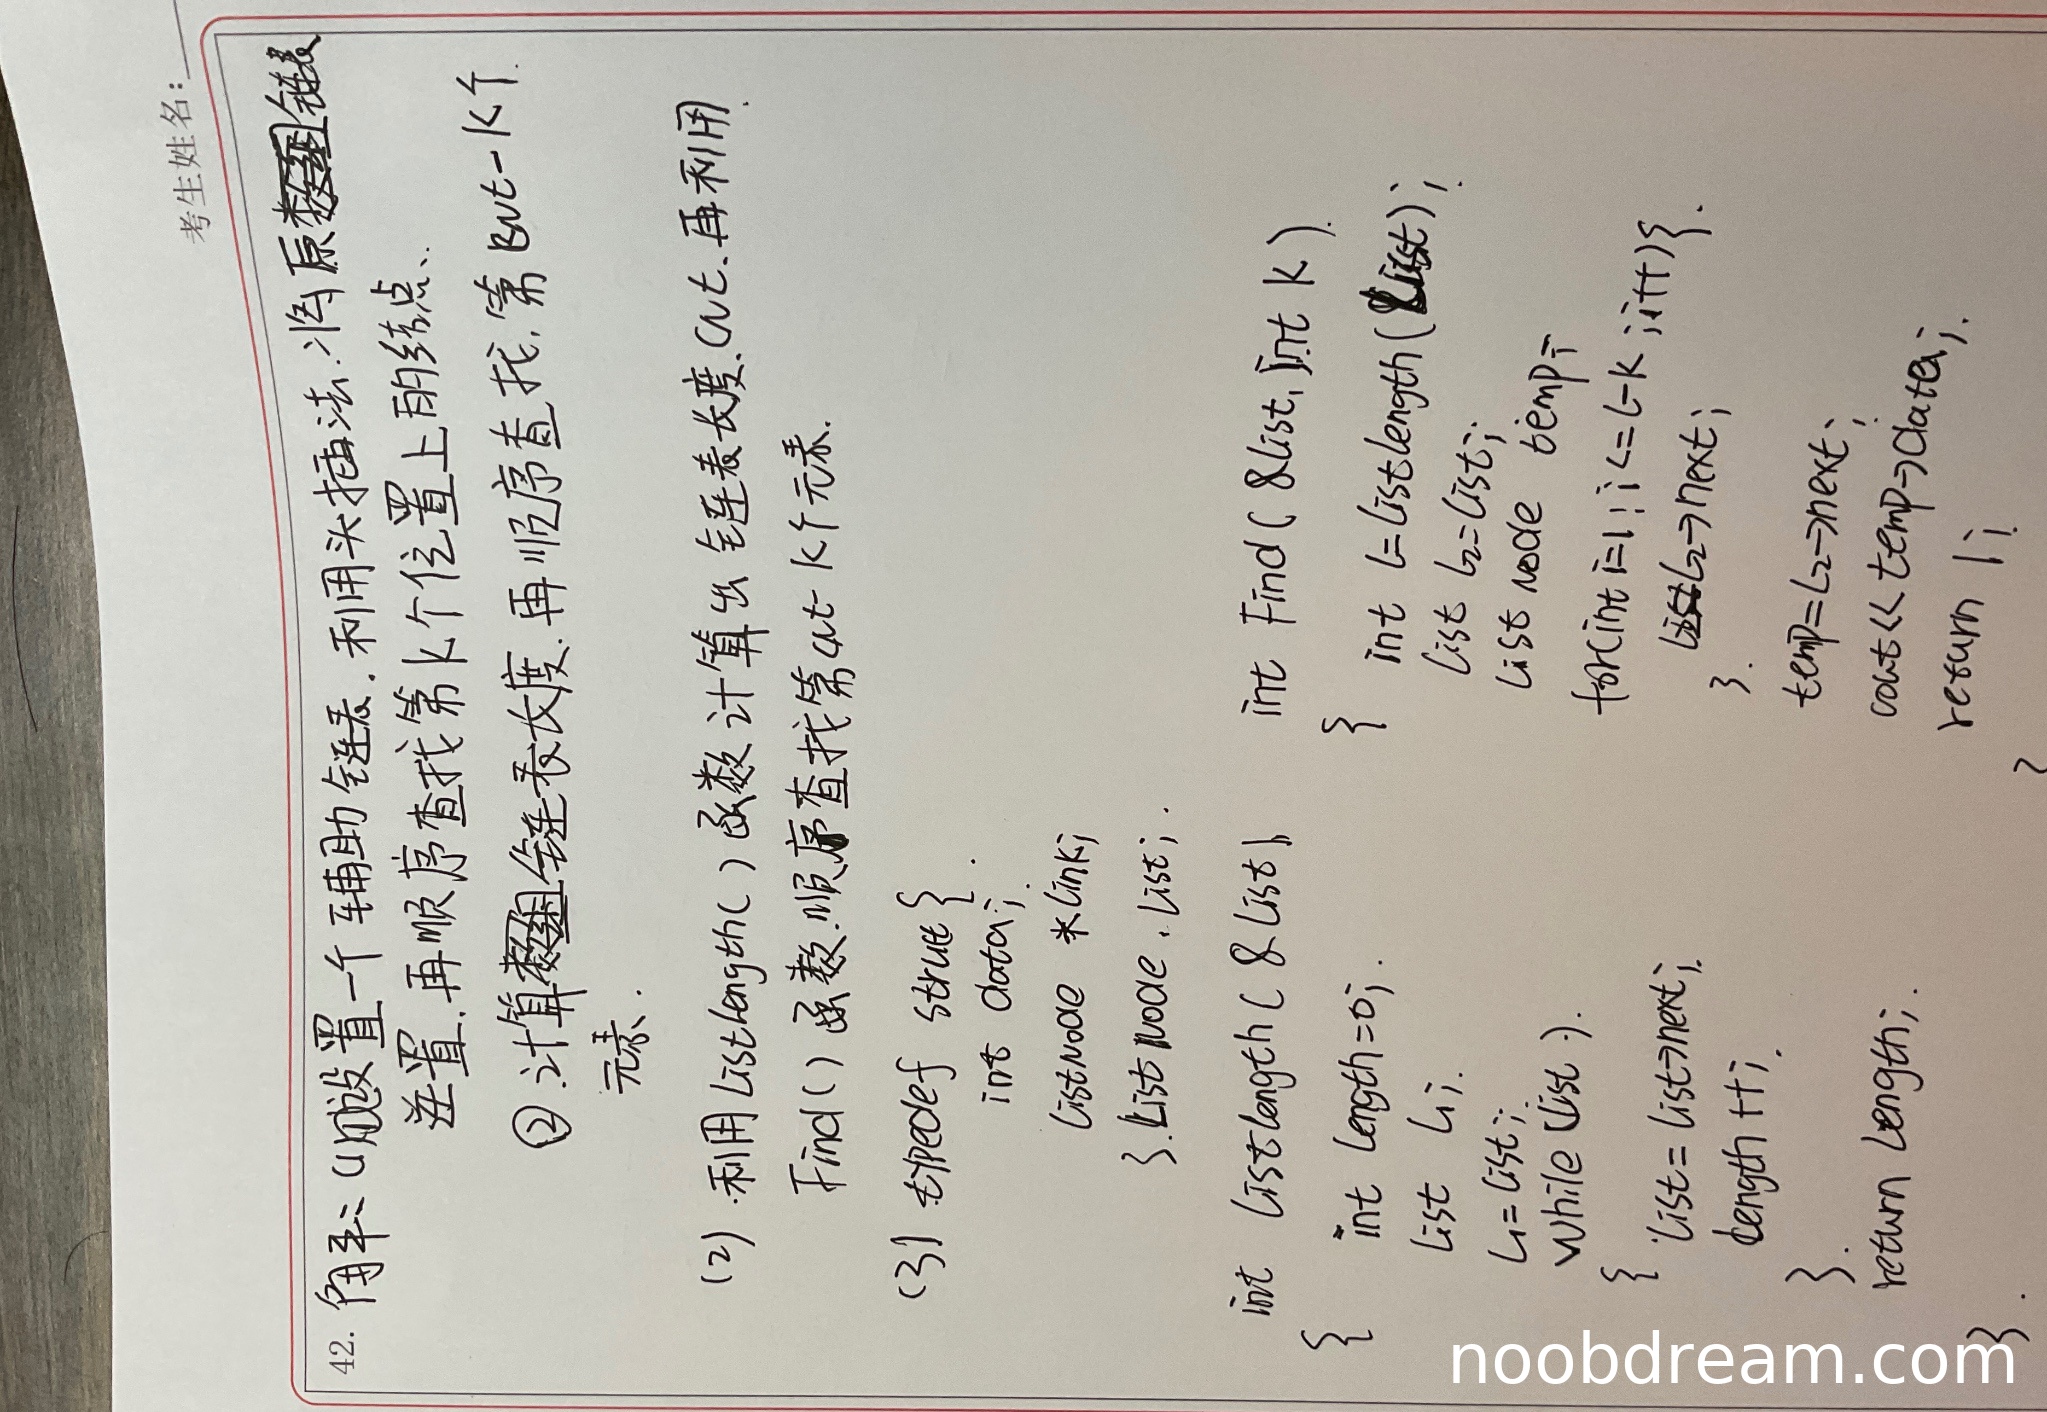 考生姓名:
42. 解:(1)①设置一个辅助链表.利用头插法.将原链表
逆置.再顺序查找第k个位置上的结点.
②.计算链表长度.再顺序查找.第cut-k个
元素.
(2).利用ListLength()函数计算出链表长度.cut.再利用
Find()函数.顺序查找第cut-k个元素.
(3) typedef struct{
int data;
ListNode *link;
}.ListNode.List;
int ListLength(&List)
{
int length=0;
List L1;
L1=List;
while(List).
{
List=List->next;
length++;
}.
return length;
}
int Find(&List,int k).
{
int L=ListLength(List);
List L2=List;
ListNode temp;
for(int i=1;i<=L-k;i++){.
L2->next;
}.
temp=L2->next;
cout<<temp->data;
return 1;
}
noobdream.com